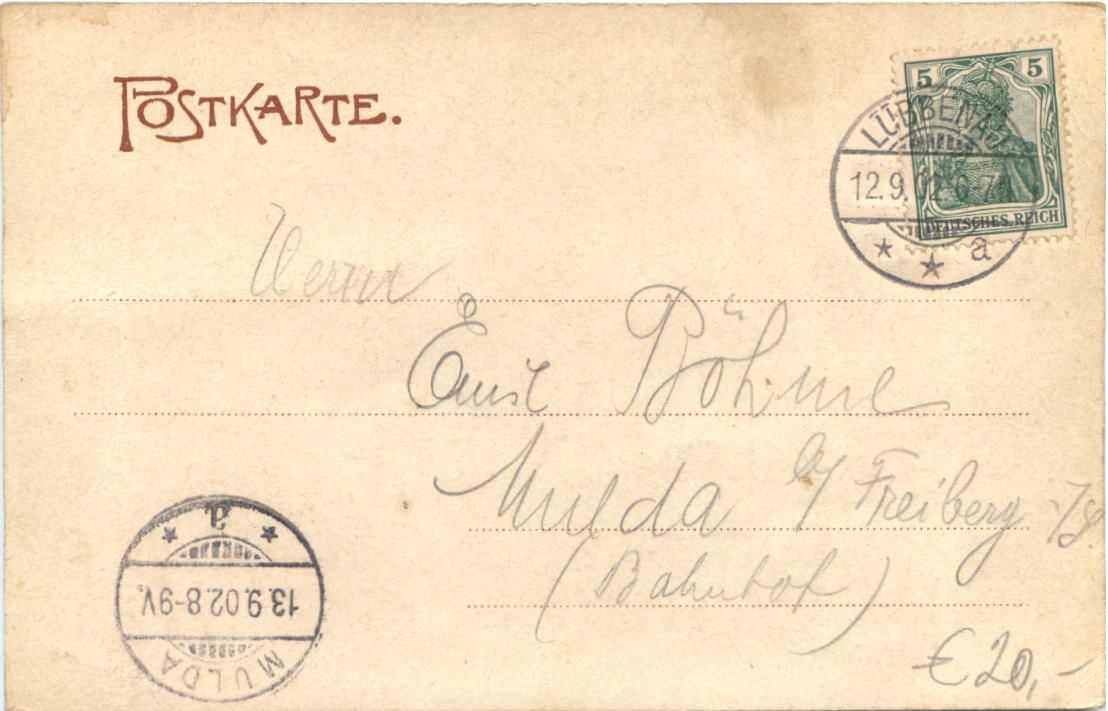 POSTKARTE.
5 5
LÜBBENAU
12.9.02 6-7N
DEUTSCHES REICH
a
Herrn
Emil Böhme
Mulda b/ Freiberg
(Bahnhof)
a
13.9.02.8-9V.
MULDA
€ 20,-